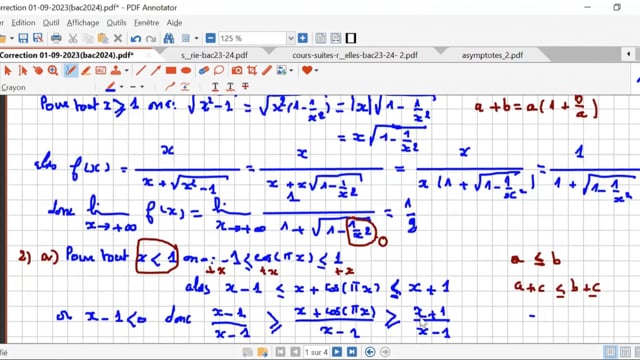 Correction 01-09-2023(bac2024).pdf* - PDF Annotator
Edition Affichage Outils Aide
125 %
orrection 01-09-2023(bac2024).pdf* s_rie-bac23-24.pdf cours-suites-r_elles-bac23-24- 2.pdf asymptotes_2.pdf
Crayon
Pour tout x ≥ 1 on a : √(x²-1) = √(x²(1-1/x²)) = |x|√(1-1/x²)
a+b = a(1+b/a)
= x√(1-1/x²)
alors f(x) = x/(x+√(x²-1)) = x/(x+x√(1-1/x²)) = x/(x(1+√(1-1/x²))) = 1/(1+√(1-1/x²))
donc lim x→+∞ f(x) = lim x→+∞ 1/(1+√(1-1/x²)) = 1/2
0
2) a) Pour tout x < 1 on a : -1 ≤ cos(πx) ≤ 1
a ≤ b
+x +x +x
alors x-1 ≤ x+cos(πx) ≤ x+1
a+c ≤ b+c
or x-1<0 donc (x-1)/(x-1) ≥ (x+cos(πx))/(x-1) ≥ (x+1)/(x-1)
1 sur 4